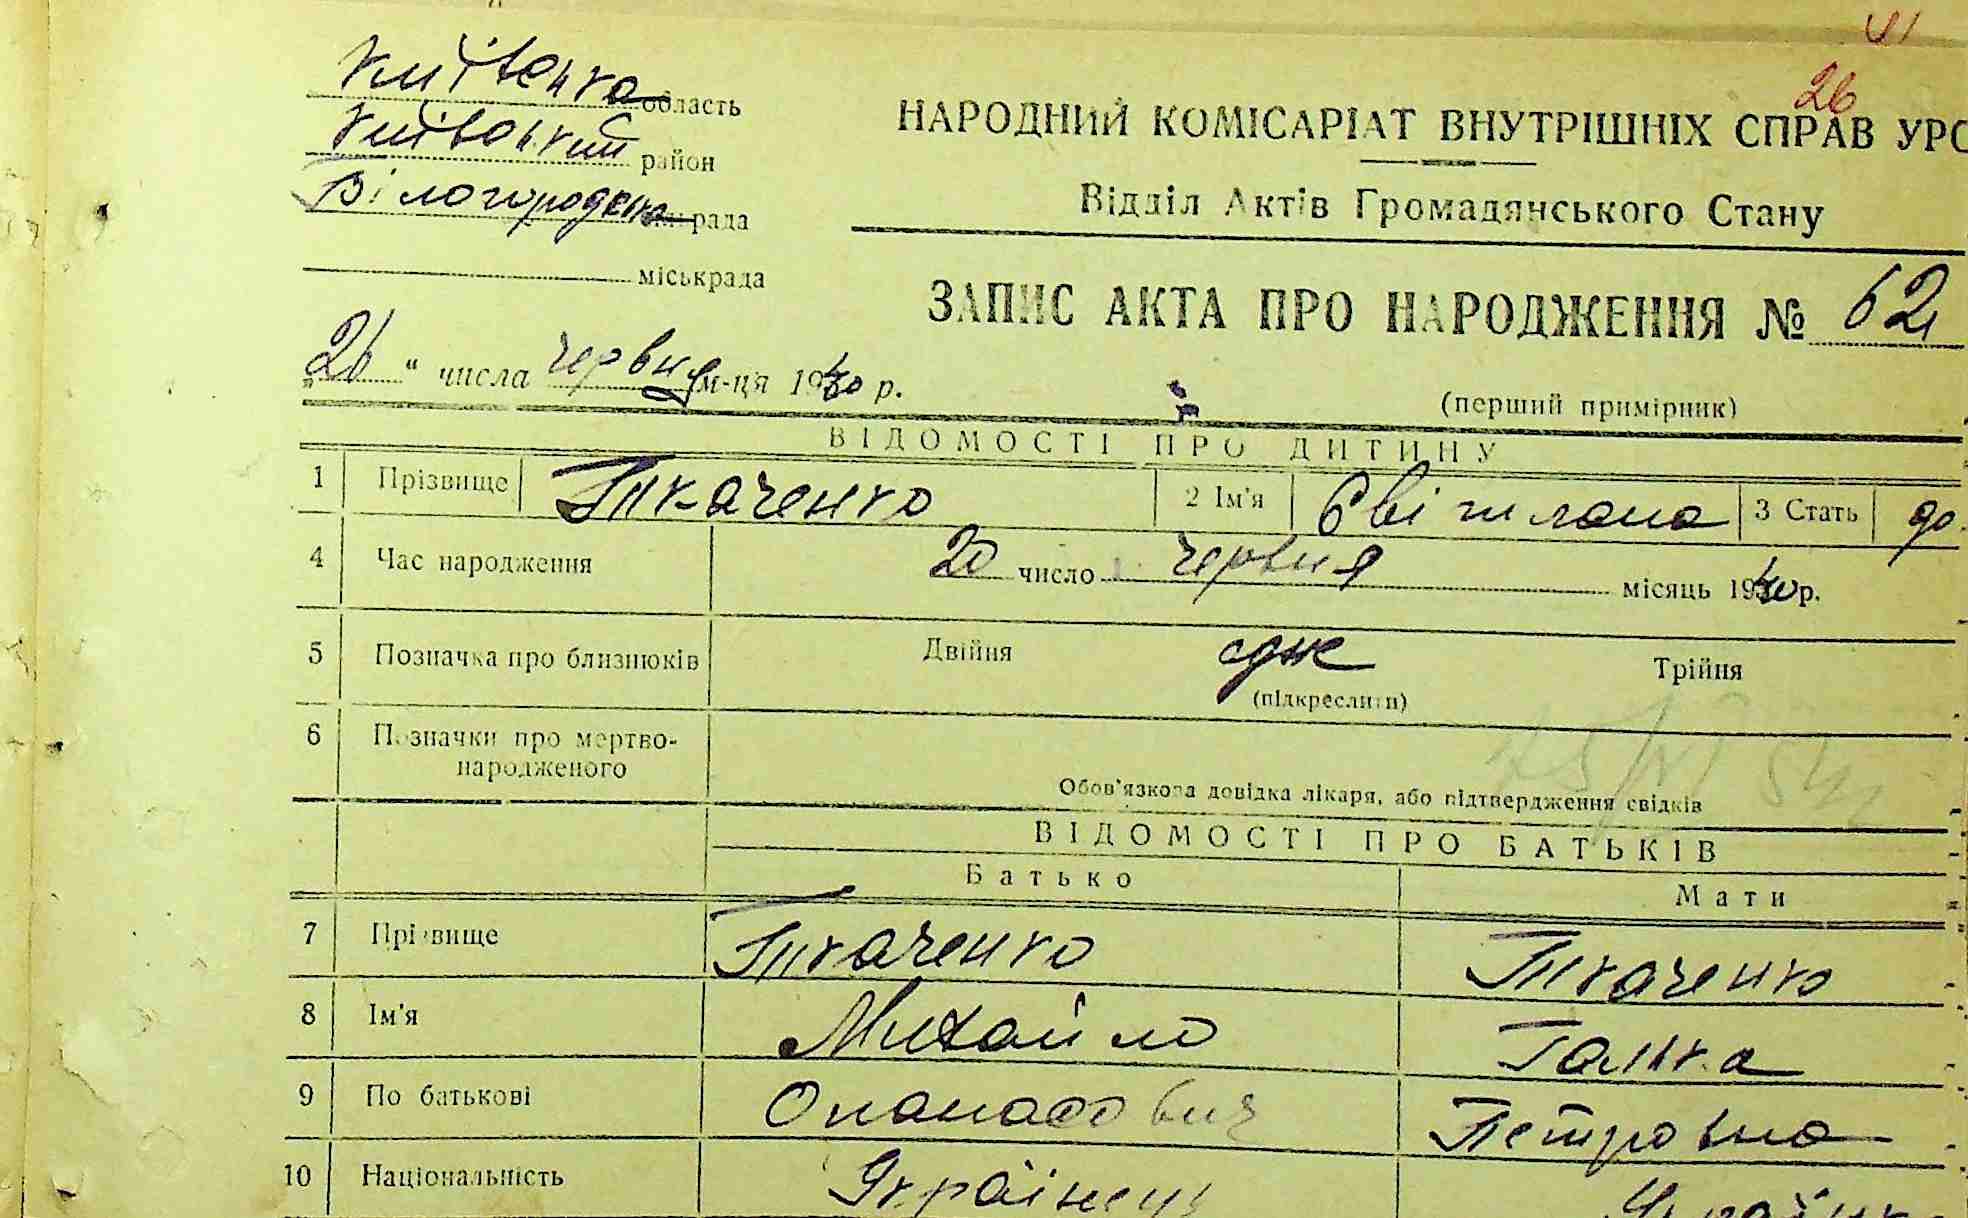 26
Київська область
Київський район
Білогородська рада
міськрада
НАРОДНИЙ КОМІСАРІАТ ВНУТРІШНІХ СПРАВ УРС
Відділ Актів Громадянського Стану
ЗАПИС АКТА ПРО НАРОДЖЕННЯ № 62
„26“ числа червня м-ця 1940 р.
(перший примірник)
ВІДОМОСТІ ПРО ДИТИНУ
1 Прізвище Ткаченко 2 Ім'я Світлана 3 Стать
4 Час народження 20 число червня місяць 1940 р.
5 Позначка про близнюків Двійня одне Трійня
(підкреслити)
6 Позначки про мертво-
народженого
Обов'язкова довідка лікаря, або підтвердження свідків
ВІДОМОСТІ ПРО БАТЬКІВ
Батько Мати
7 Прізвище Ткаченко Ткаченко
8 Ім'я Михайло Галька
9 По батькові Опанасович Петровна
10 Національність Українець